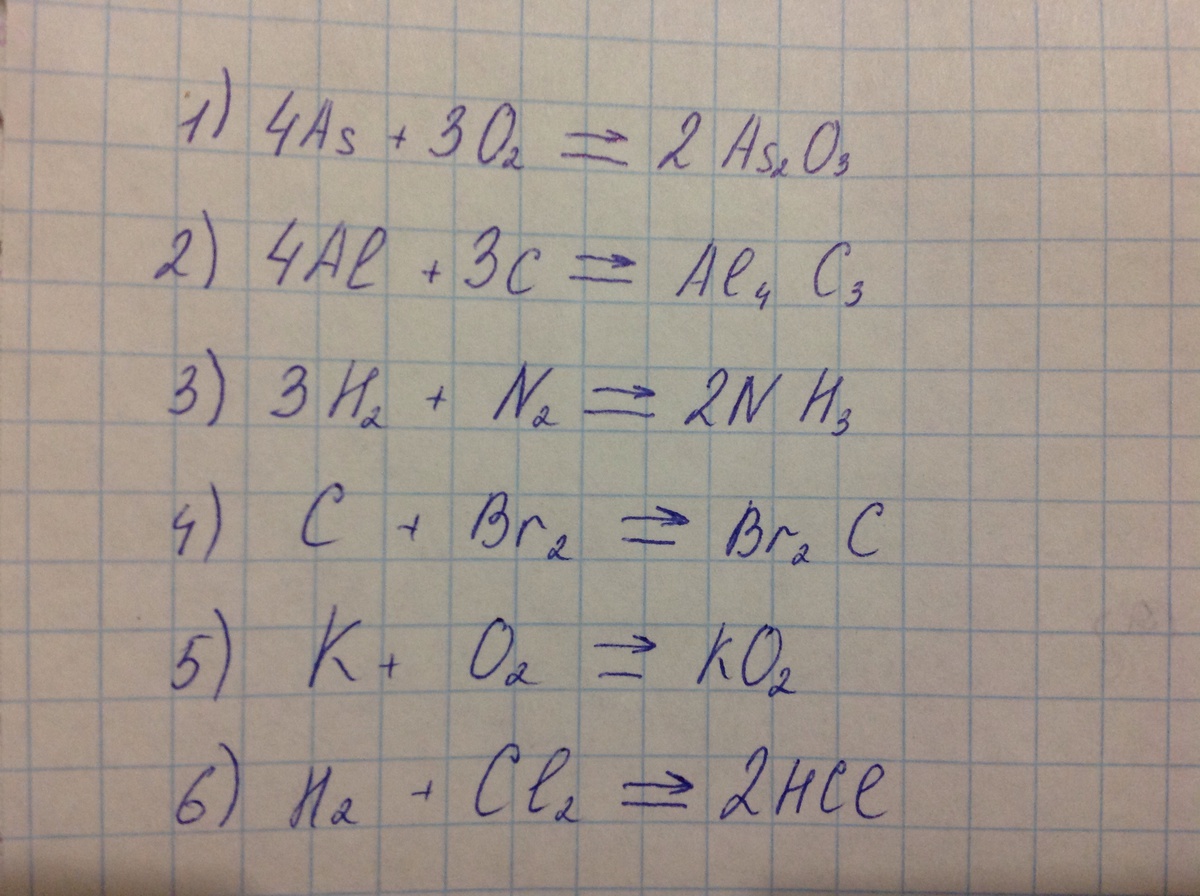 1) 4As + 3O₂ ⇒ 2As₂O₃
2) 4Al + 3C ⇒ Al₄C₃
3) 3H₂ + N₂ ⇒ 2NH₃
4) C + Br₂ ⇒ Br₂C
5) K + O₂ ⇒ KO₂
6) H₂ + Cl₂ ⇒ 2HCl